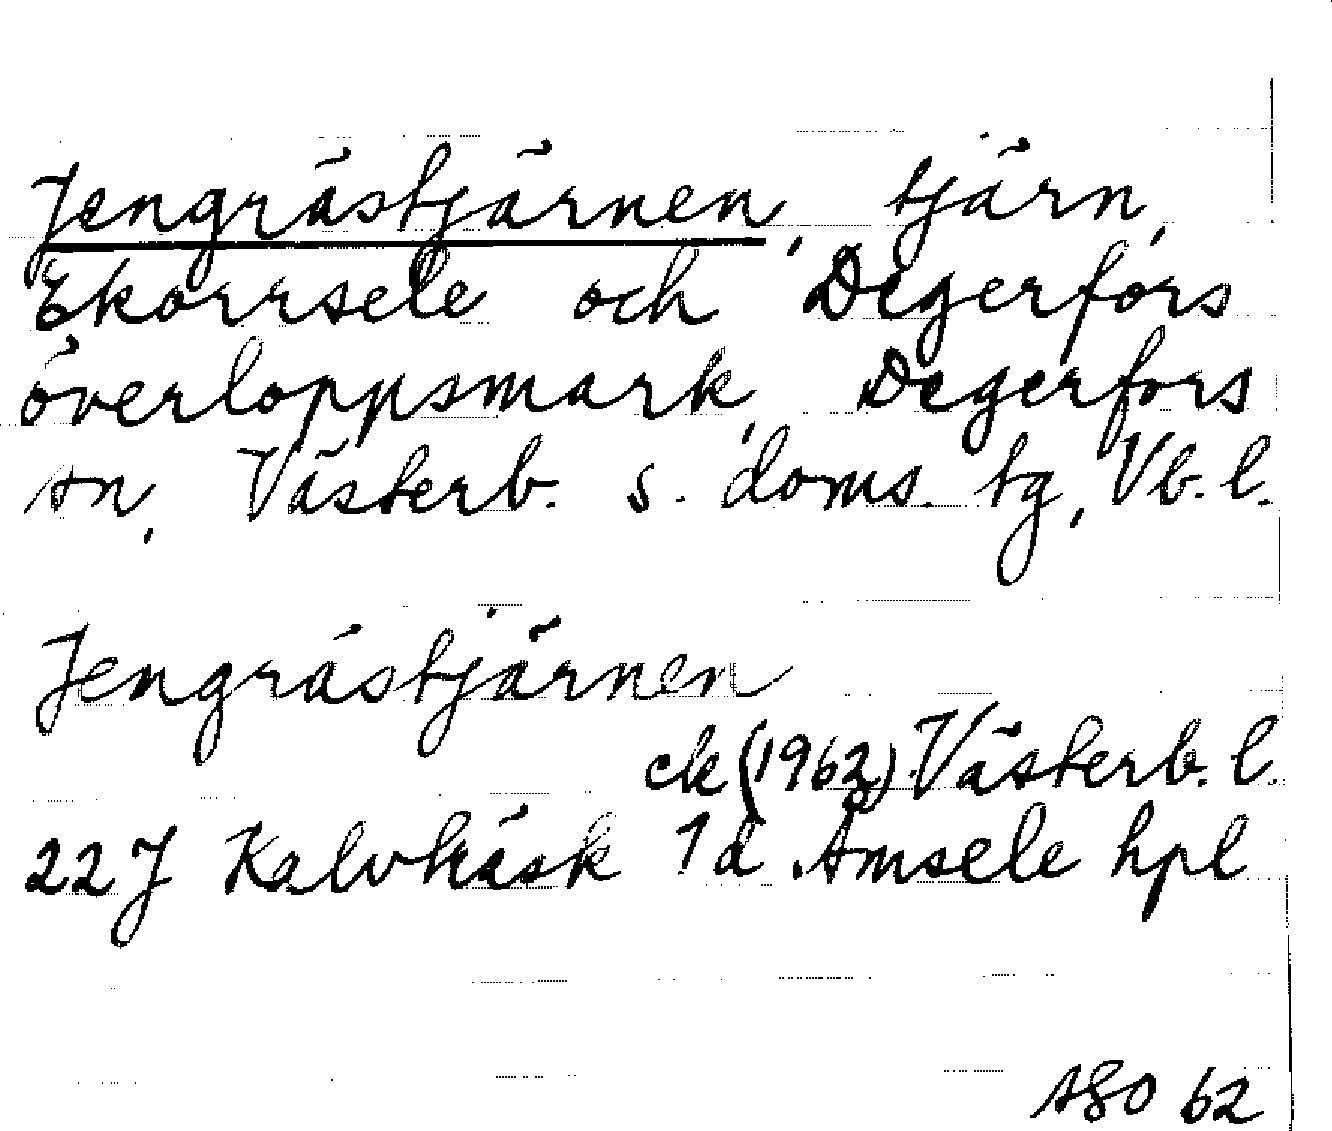 Jengrästjärnen, tjärn,
Ekorrsele och Degerfors
överloppsmark, Degerfors
sn, Västerb. s. doms. tg, Vb. l.
Jengrästjärnen
ek (1962) Västerb. l.
22 J Kalvträsk 1 d Åmsele hpl
ASO 62